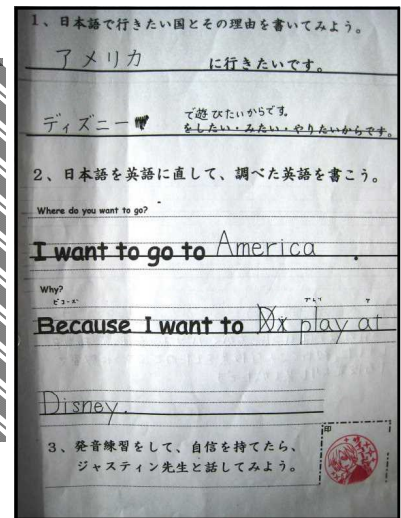 1、日本語で行きたい国とその理由を書いてみよう。
アメリカ に行きたいです。
ディズニー で遊びたいからです。
をしたい・みたい・やりたいからです。
2、日本語を英語に直して、調べた英語を書こう。
Where do you want to go?
I want to go to America .
Why?
ビコーズ
Because I want to play at
Disney.
3、発音練習をして、自信を持てたら、
ジャスティン先生と話してみよう。
印